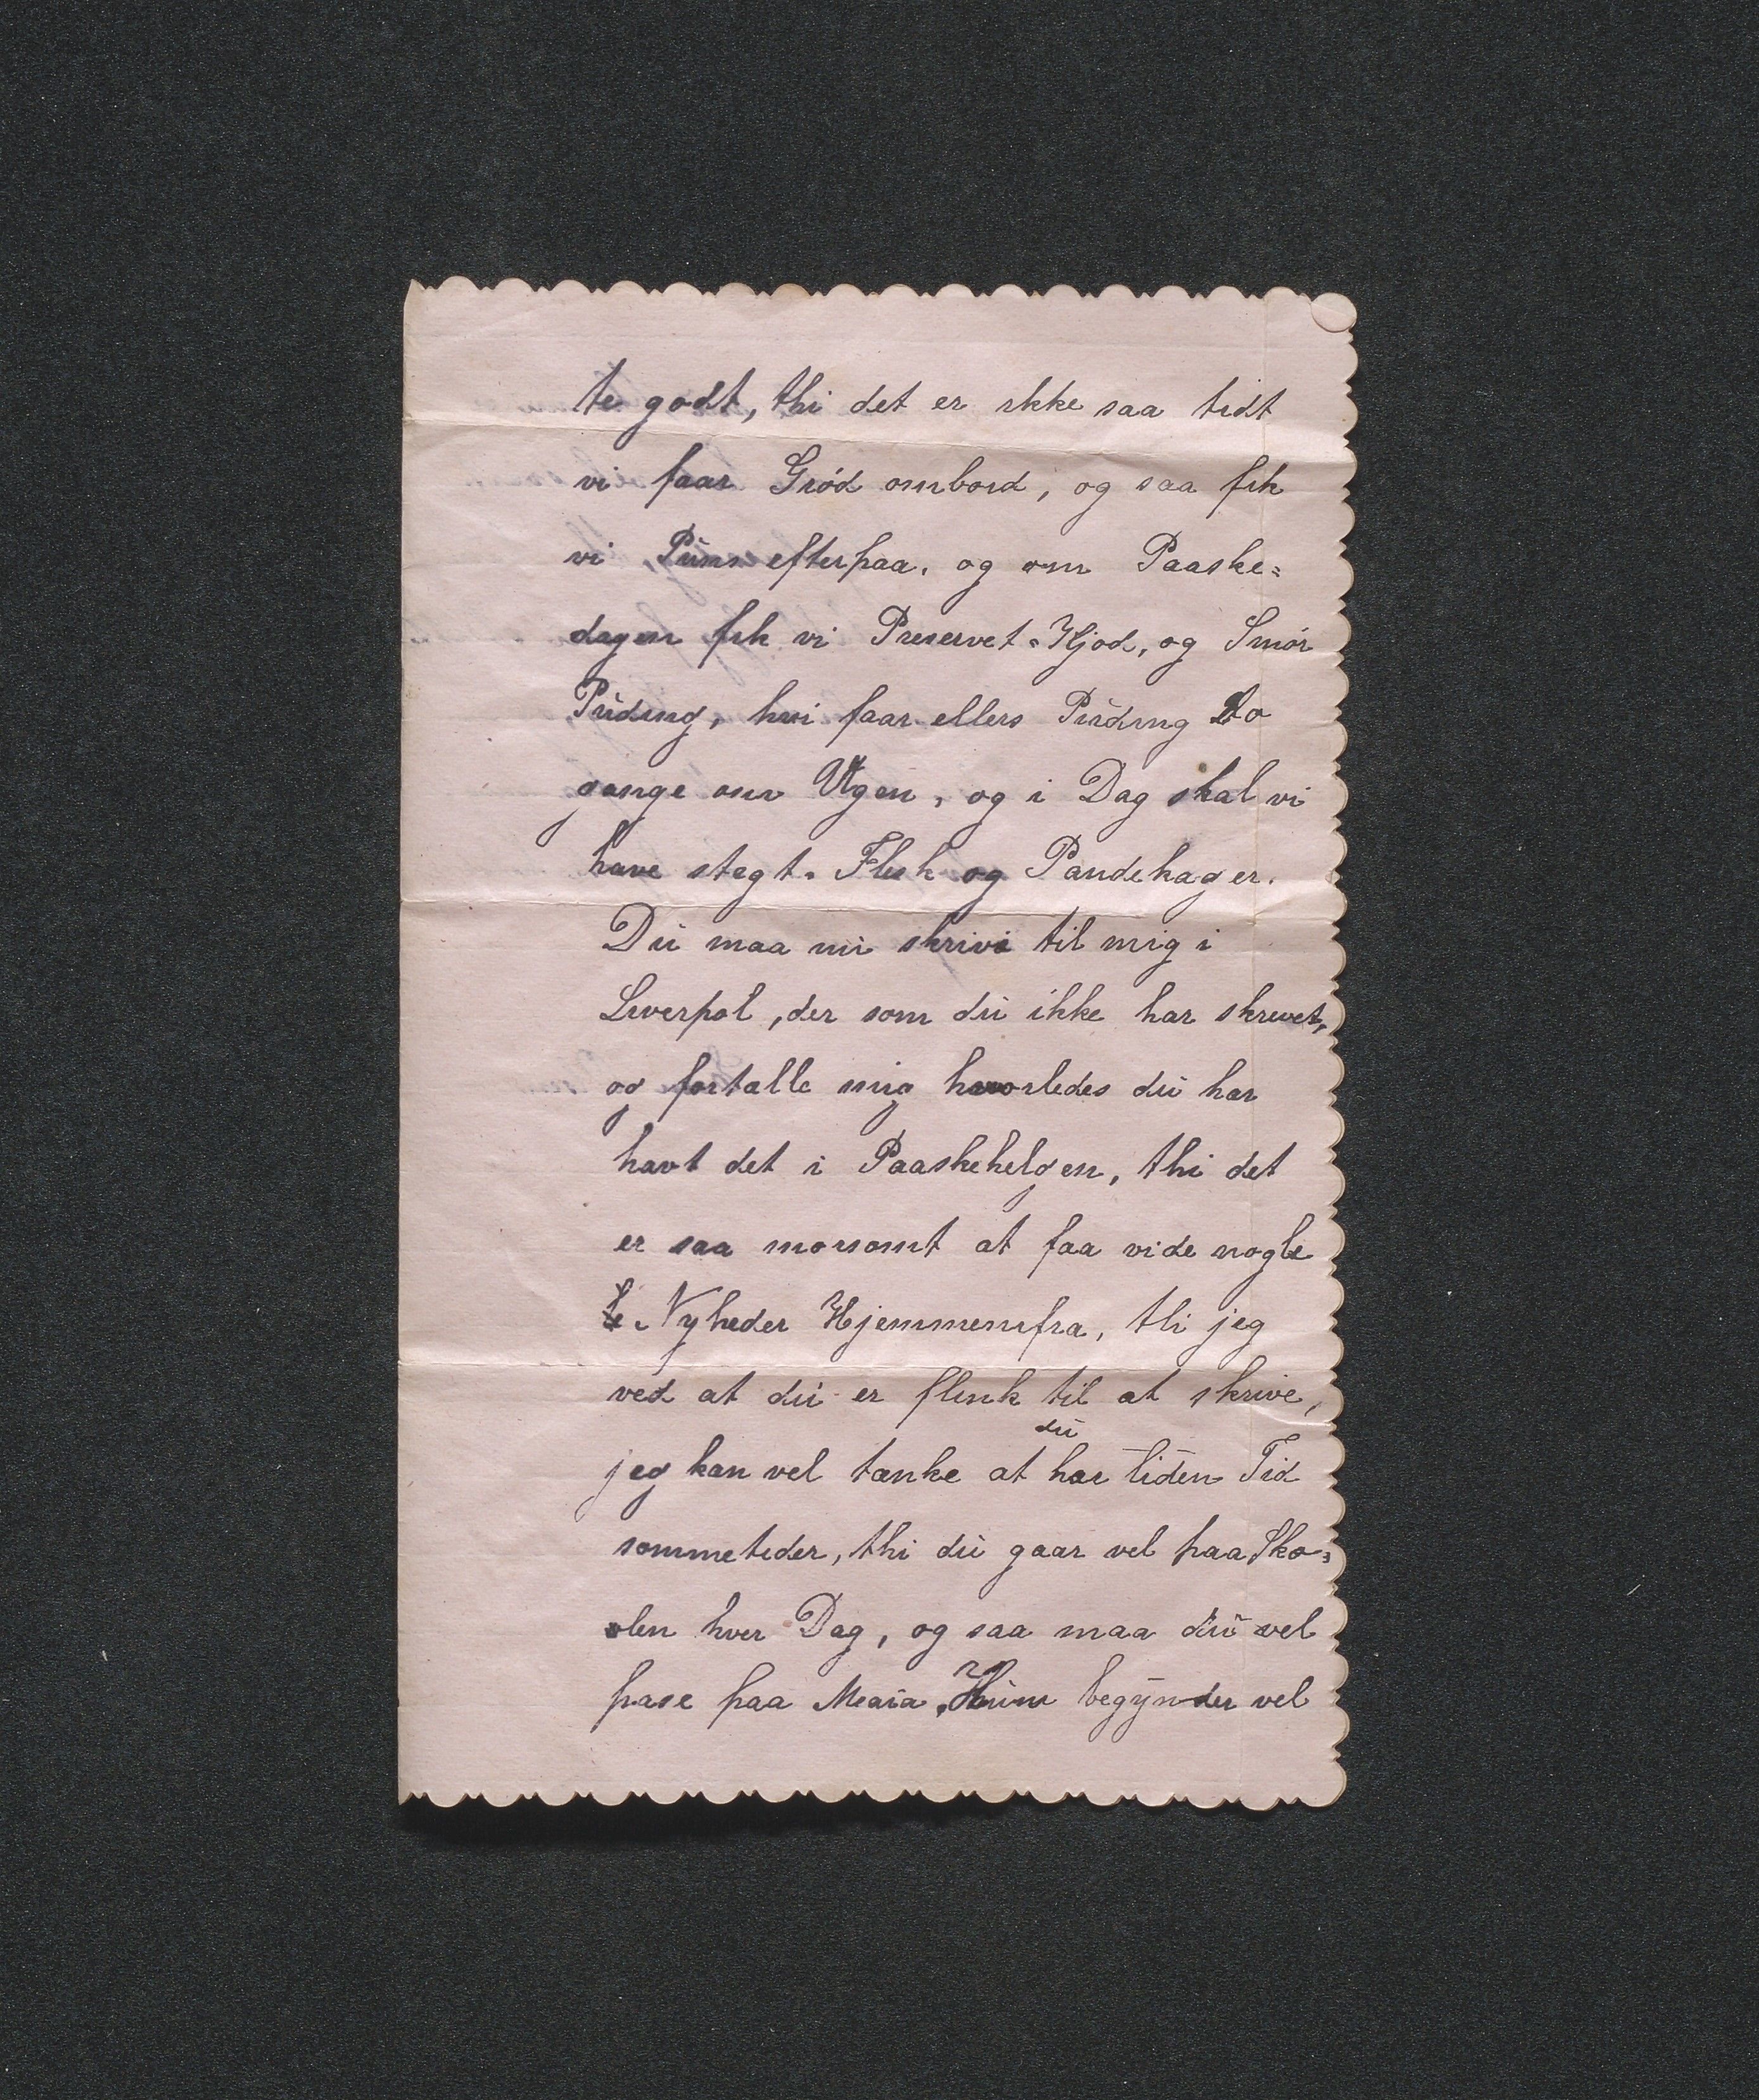 te godt, thi det er ikke saa tidt
vi faar Gród ombord, og saa fik
vi Puns efterpaa, og om Paaske=
dagen fik vi Preservet=Kjod, og Smór
Puding, hvi faar ellers Puding to
gange om Ugen, og i Dag skal vi
have stegt. Flesk og Pandekager.
Du maa nu skrive til mig i
Liverpol, der som du ikke har skrevet,
og fortalle mig hvorledes du har
havt det i Paaskehelgen, thi det
er saa morsomt at faa vide nogle
Nyheder Hjemmenifra, thi jeg
ved at du er flink til at skrive,
jeg kan vel tanke at du har liden Tid
sommetider, thi du gaar vel paa Sko=
olen hver Dag, og saa maa du vel
pase paa Maria, Hun begynder vel